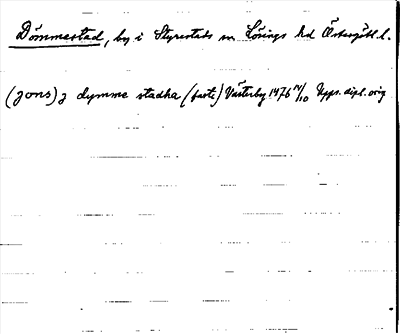 Dömmestad, by i Styrestads sn Lösings hd Östergötl. l.
(jons) j dymme stadha (fasti) Västerby 1476 14/10 Upps. dipl. orig